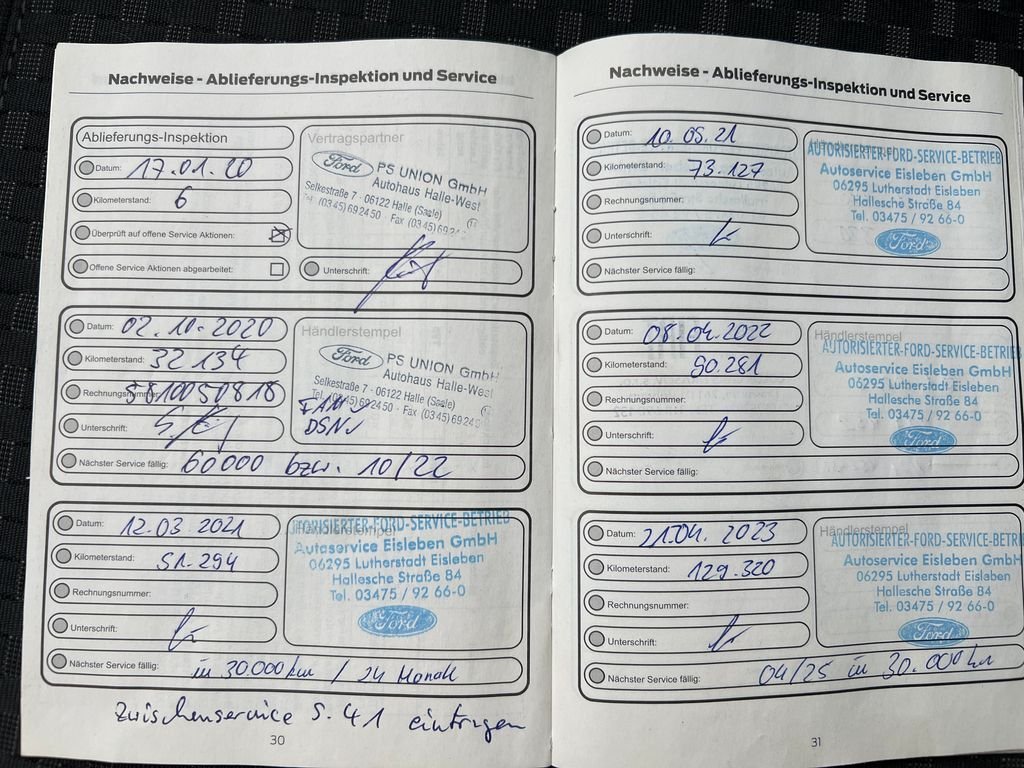 Nachweise - Ablieferungs-Inspektion und Service
Ablieferungs-Inspektion
Datum: 17.01.20
Kilometerstand: 6
Überprüft auf offene Service Aktionen:
Offene Service Aktionen abgearbeitet:
Vertragspartner
Ford PS UNION GmbH
Autohaus Halle-West
Selkestraße 7 - 06122 Halle (Saale)
Tel. (0345) 692450 · Fax (0345) 6924
Unterschrift:
Datum: 02.10.2020
Kilometerstand: 32 134
Rechnungsnummer: 5810050818
Unterschrift:
Nächster Service fällig: 60000 bzw. 10/22
Händlerstempel
Ford PS UNION GmbH
Autohaus Halle-West
Selkestraße 7 - 06122 Halle (Saale)
Tel. (0345) 692450 · Fax (0345) 6924
DSN
Datum: 12.03.2021
Kilometerstand: 51.294
Rechnungsnummer:
Unterschrift:
Nächster Service fällig: in 30.000 km / 24 Monate
TORISIERTER-FORD-SERVICE-BETRIEB
Autoservice Eisleben GmbH
06295 Lutherstadt Eisleben
Hallesche Straße 84
Tel. 03475 / 92 66-0
Ford
Zwischenservice S. 41 eintragen
30
Nachweise - Ablieferungs-Inspektion und Service
Datum: 10.05.21
Kilometerstand: 73.127
Rechnungsnummer:
Unterschrift:
Nächster Service fällig:
AUTORISIERTER-FORD-SERVICE-BETRIEB
Autoservice Eisleben GmbH
06295 Lutherstadt Eisleben
Hallesche Straße 84
Tel. 03475 / 92 66-0
Ford
Datum: 08.04.2022
Kilometerstand: 90.281
Rechnungsnummer:
Unterschrift:
Nächster Service fällig:
Händlerstempel
AUTORISIERTER-FORD-SERVICE-BETRIEB
Autoservice Eisleben GmbH
06295 Lutherstadt Eisleben
Hallesche Straße 84
Tel. 03475 / 92 66-0
Ford
Datum: 21.04.2023
Kilometerstand: 129.320
Rechnungsnummer:
Unterschrift:
Nächster Service fällig: 04/25 in 30.000 km
Händlerstempel
AUTORISIERTER-FORD-SERVICE-BETRI
Autoservice Eisleben GmbH
06295 Lutherstadt Eisleben
Hallesche Straße 84
Tel. 03475 / 92 66-0
Ford
31